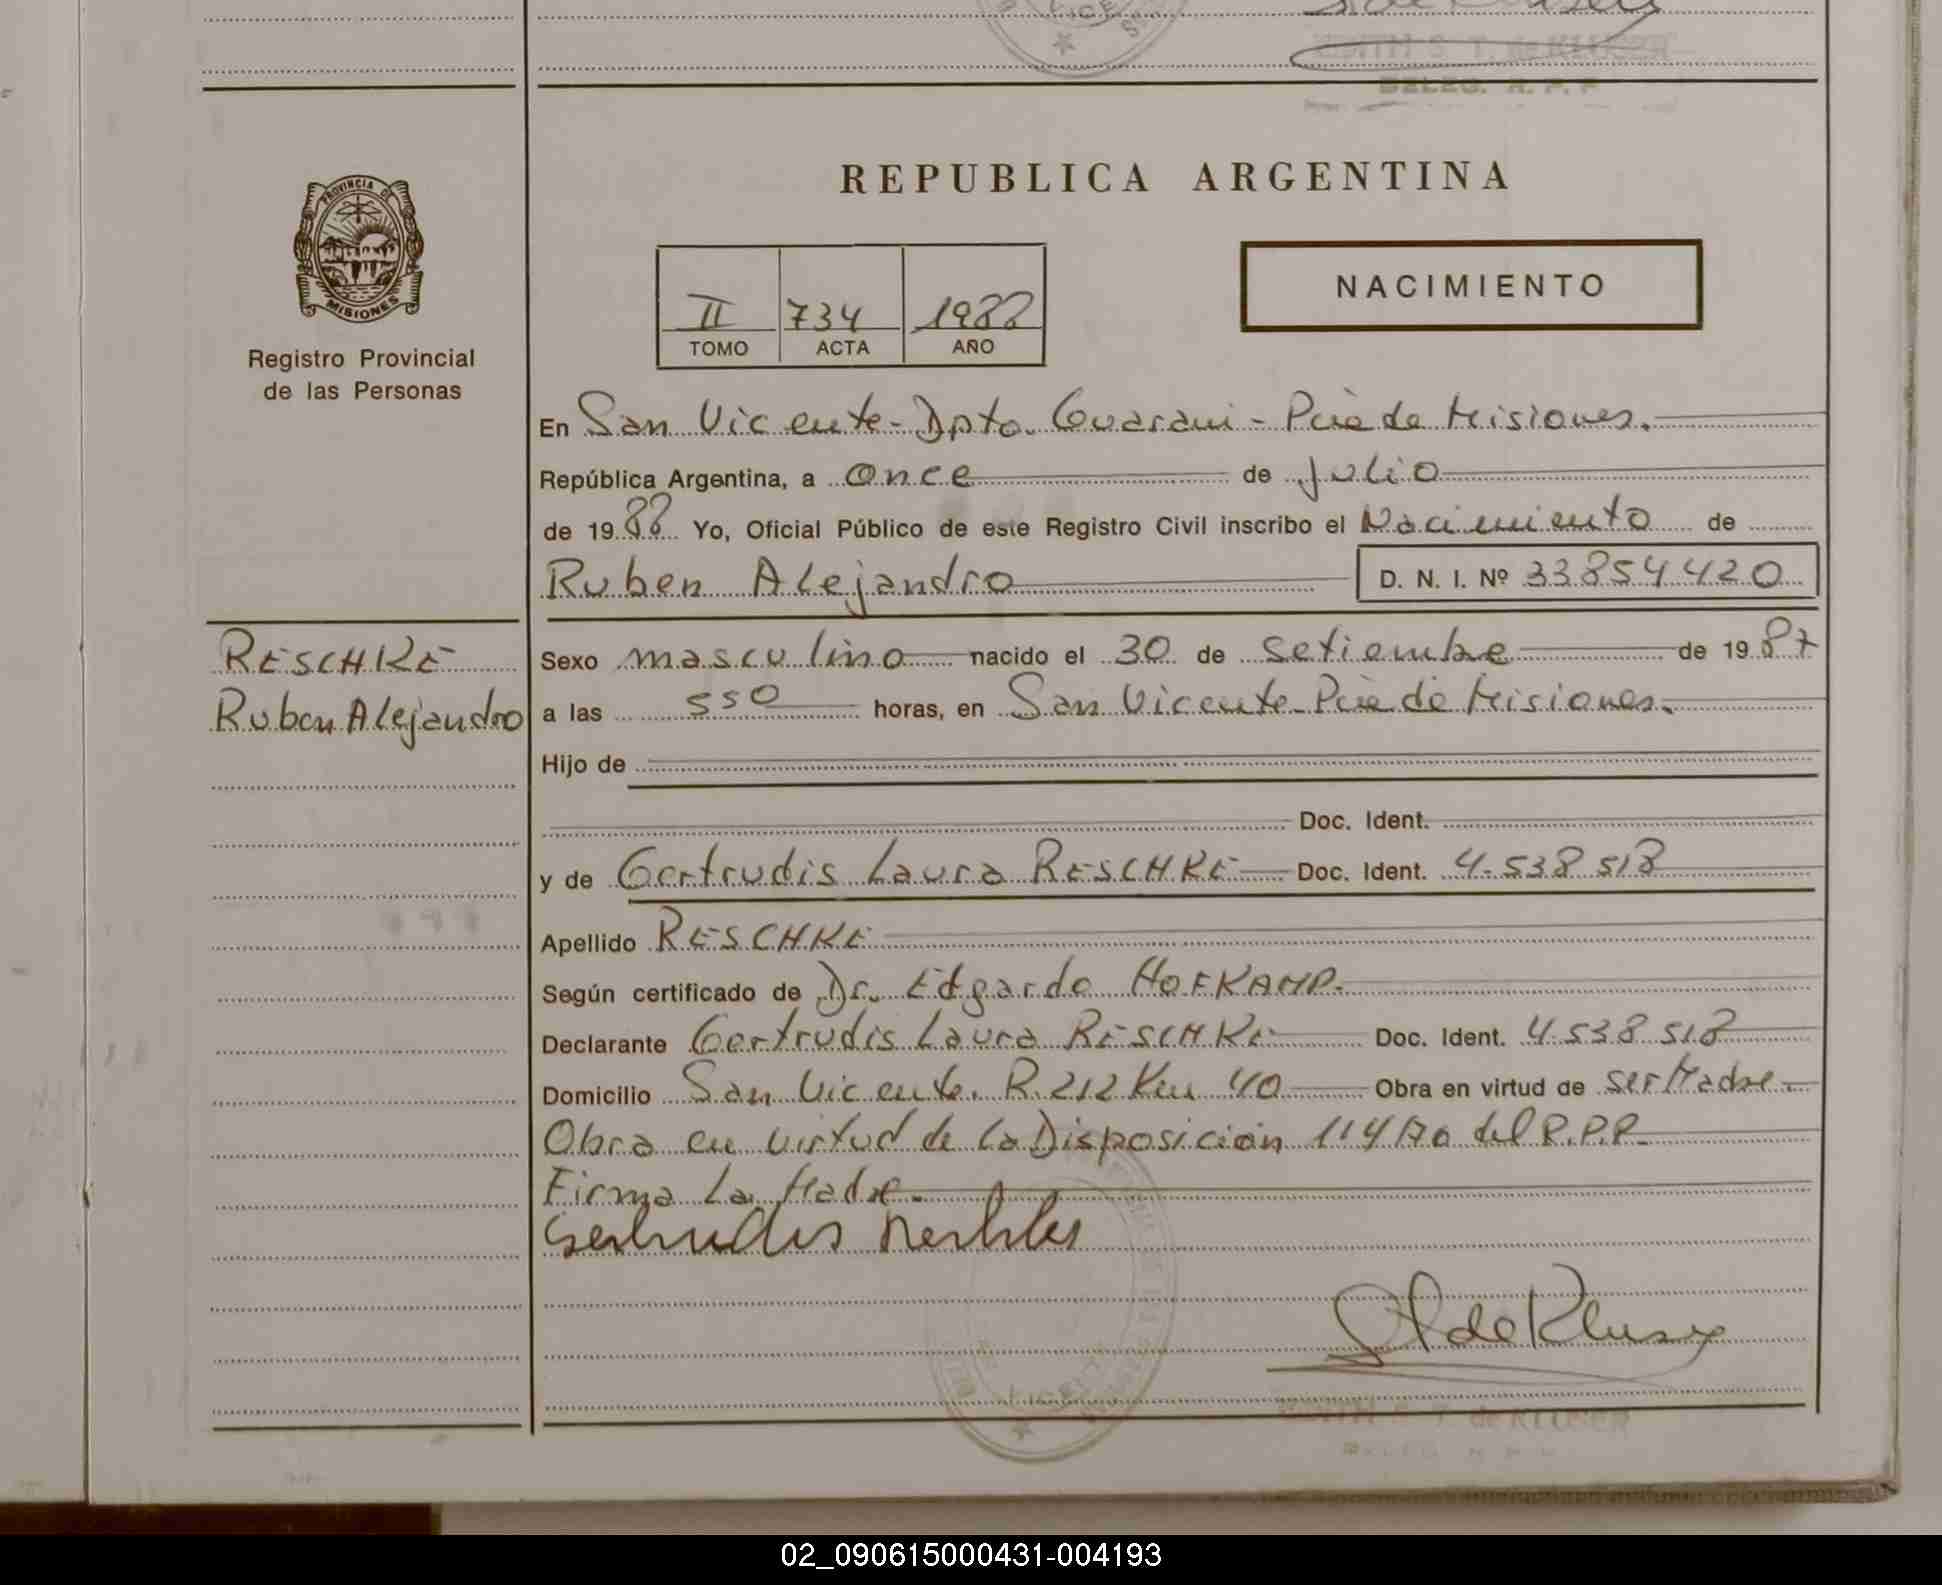 LICE
EDITH S. T. de KLUSER
DELEG. R. P. P.
PROVINCIA DE
MISIONES
Registro Provincial
de las Personas
REPUBLICA ARGENTINA
II 734 1988
TOMO ACTA AÑO
NACIMIENTO
En San Vicente - Dpto. Guarani - Pcia de Misiones.
República Argentina, a once de Julio
de 1988 Yo, Oficial Público de este Registro Civil inscribo el Nacimiento de
Ruben Alejandro D. N. I. Nº 33854420
RESCHKE
Ruben Alejandro
Sexo masculino nacido el 30 de setiembre de 1987
a las 550 horas, en San Vicente - Pcia de Misiones.
Hijo de
Doc. Ident.
y de Gertrudis Laura RESCHKE Doc. Ident. 4.538 518
Apellido RESCHKE
Según certificado de Dr. Edgardo HOFKAMP.
Declarante Gertrudis Laura RESCHKE Doc. Ident. 4.538 518
Domicilio San Vicente. R. 212 Km 40 Obra en virtud de ser Madre.
Obra en virtud de la Disposición 114/70 del R.P.P.
Firma La Madre.
Gertrudis
de Kluser
EDITH S. T. de KLUSER
DELEG. R. P. P.
02_090615000431-004193